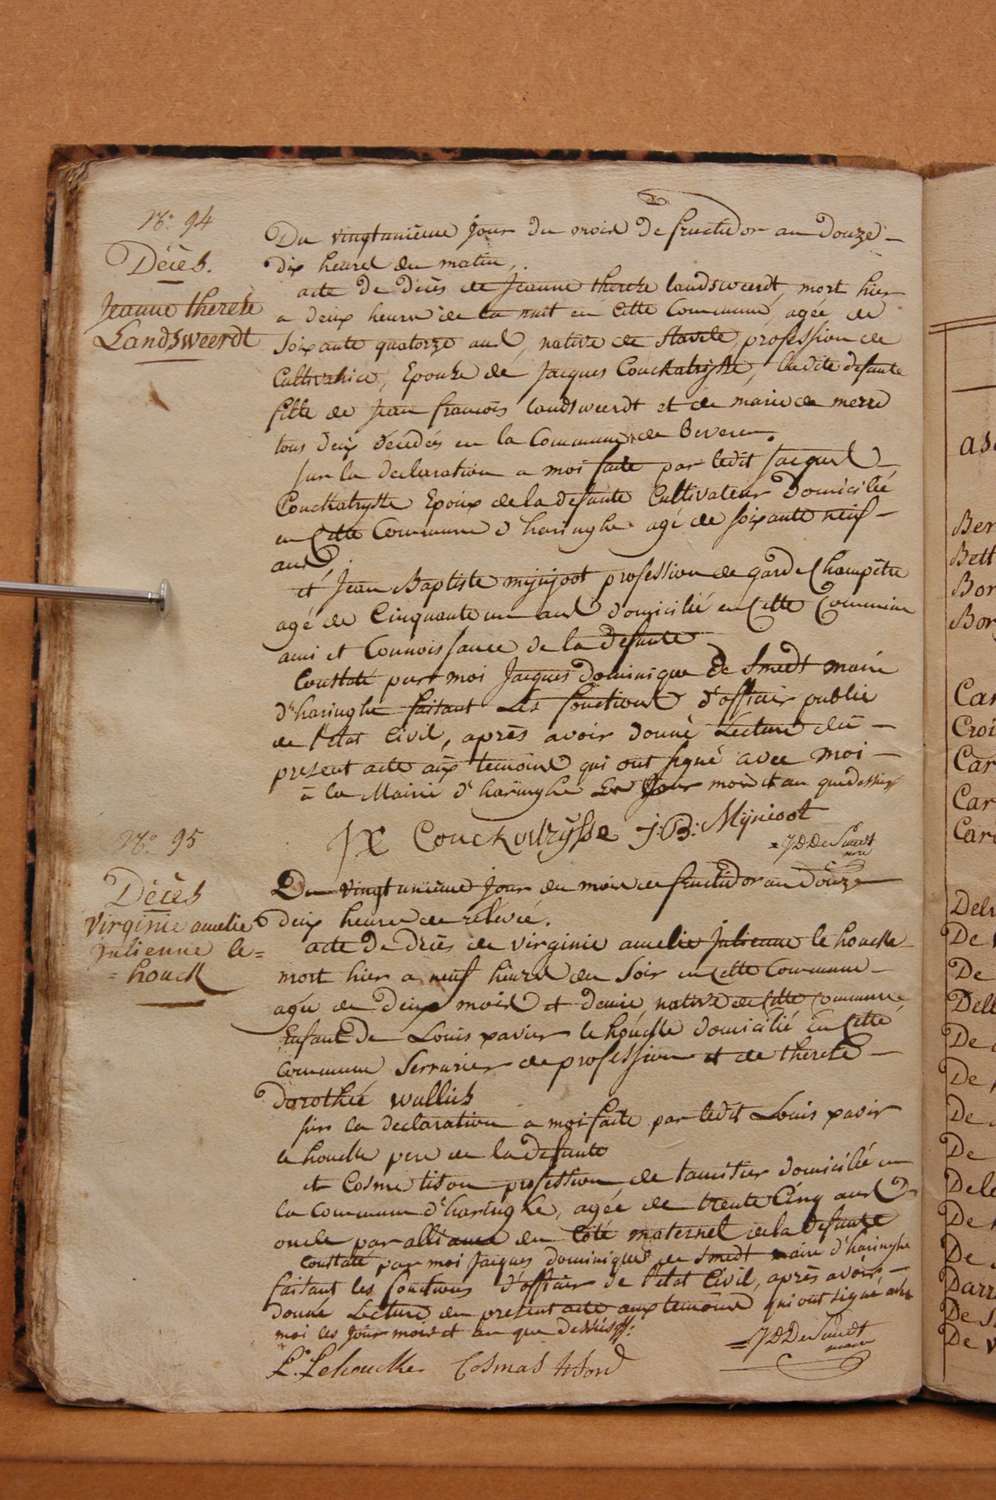 N.° 94
Décès.
Jeanne therese
Landsweerdt
Du vingtunième Jour du mois de fructidor an douze –
dix heures du matin,
acte de décès de Jeanne therese landsweerdt, mort hier
a deux heures de la nuit en Cette Commune, agée de
Soixante quatorze ans, native de Stavele, profession de
Cultivatrice, Epouse de Jacques Couckatrysse, ladite defunte
fille de Jean françois landsweerdt et de marie de merre
tous deux décedés en la Commune de Beveren.
sur la declaration a moi faite par ledit Jacques –
Couckatrysse Epoux de la defunte Cultivateur Domicilié
en Cette Commune d'haringhe agé de soixante neuf –
ans,
et Jean Baptiste mijnjoot profession de garde Champêtre
agé de Cinquante un ans domicilié en Cette Commune
ami et Connoissance de la defunte
Constaté par moi Jacques Dominique De Smedt maire
d'haringhe faisant Les fonctions d'officier public
de l'etat Civil, après avoir donné Lecture du –
present acte aux temoins qui ont signé avec moi –
à la Mairie d'haringhe les Jour mois et an que dessus
Couckuitrysse J:B: Mijnioot
= JDDeSmedt
maire
N.° 95
Décès
virginie amelie
julienne le=
=houck
Du vingtunième Jour du mois de fructidor an Douze
deux heures de relévé.
acte de décès de virginie amelie Julienne le houcke
mort hier a neuf heures du Soir en Cette Commune –
agée de deux mois et demie native de Cette commune
Enfant de Louis xavier le houcke domicilié En Cette
Commune Serrurier de profession et de therese –
Dorothé wallijs
sur la declaration a moi faite par ledit Louis xavir
le houcke pere de la defunte
et Cosme tison profession de tamisier domicilié en
la Commune d'haringhe, agée de trente Cinq ans
oncle par alliance du Côté maternel de la defunte
Constaté par moi Jacques dominique de Smedt maire d'haringhe
faisant les fonctions d'officier de l'etat Civil, après avoir –
donné Lecture du present acte aux temoins qui ont signé avec
moi les jour mois et an que dessus.
L. Lehoucke Cosmas tison
= JDDeSmedt
maire
Ber
Bett
Bor
Bor
Car
Croi
Car
Car
Car
Delv
De
De
Delb
De
De
De
De
Dele
De
De
Darr
De
De